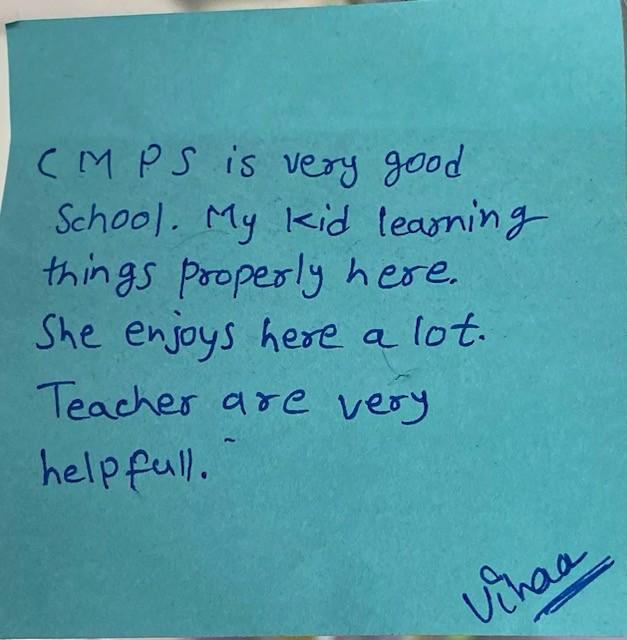 CMPS is very good
School. My kid learning
things properly here.
She enjoys here a lot.
Teacher are very
helpfull.
Vihaa